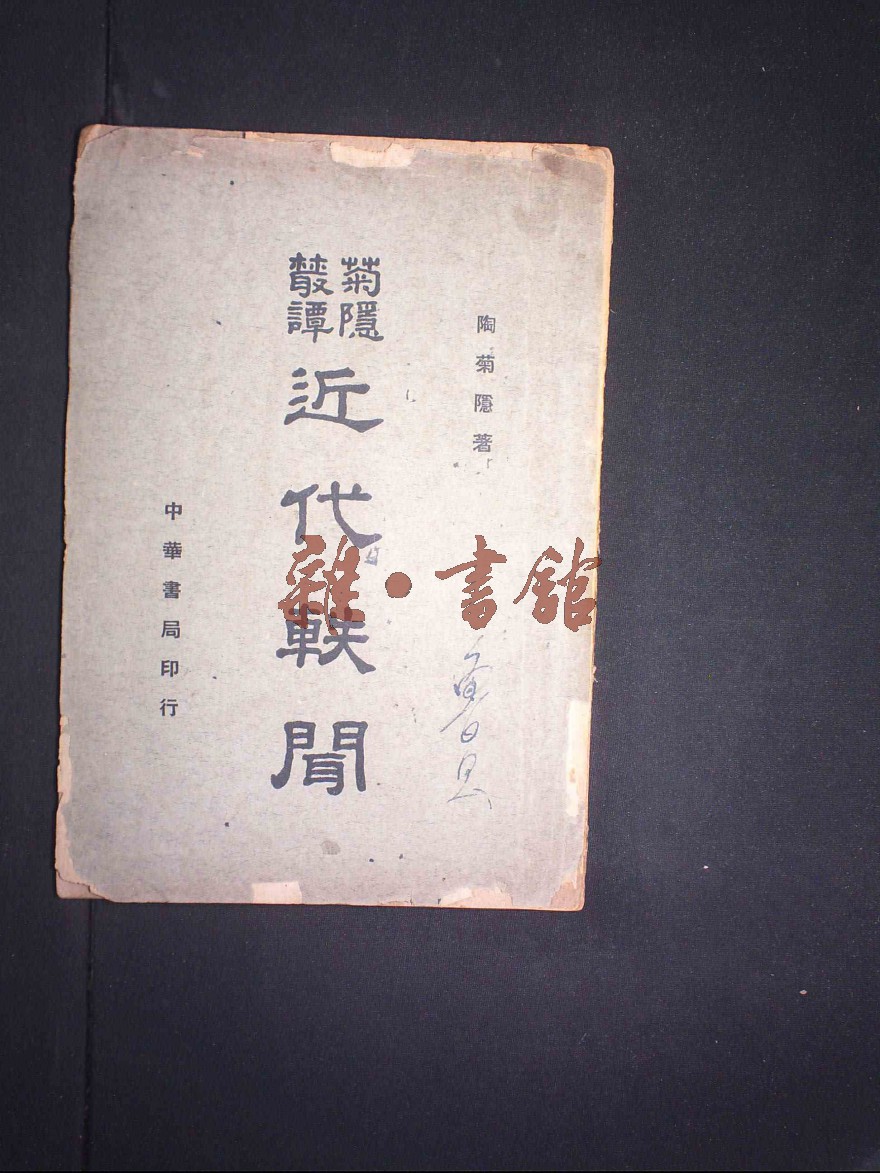 陶菊隱著
菊隱
叢譚
近代軼聞
中華書局印行
雜·書館